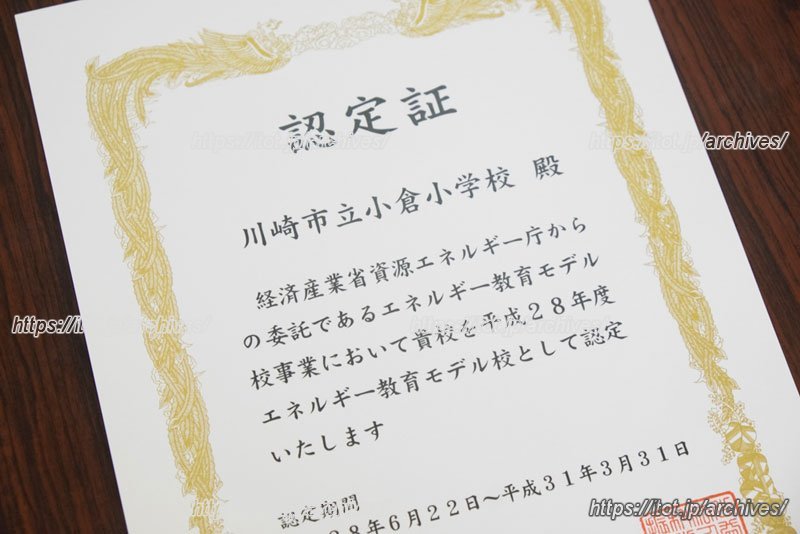 認定証
川崎市立小倉小学校 殿
経済産業省資源エネルギー庁から
の委託であるエネルギー教育モデル
校事業において貴校を平成28年度
エネルギー教育モデル校として認定
いたします
認定期間
28年6月22日～平成31年3月31日
https://itot.jp/archives/
https://itot.jp/archives/
https://itot.jp/archives/
https://itot.jp/archives/
https://itot.jp/archives/
https://itot.jp/archives/